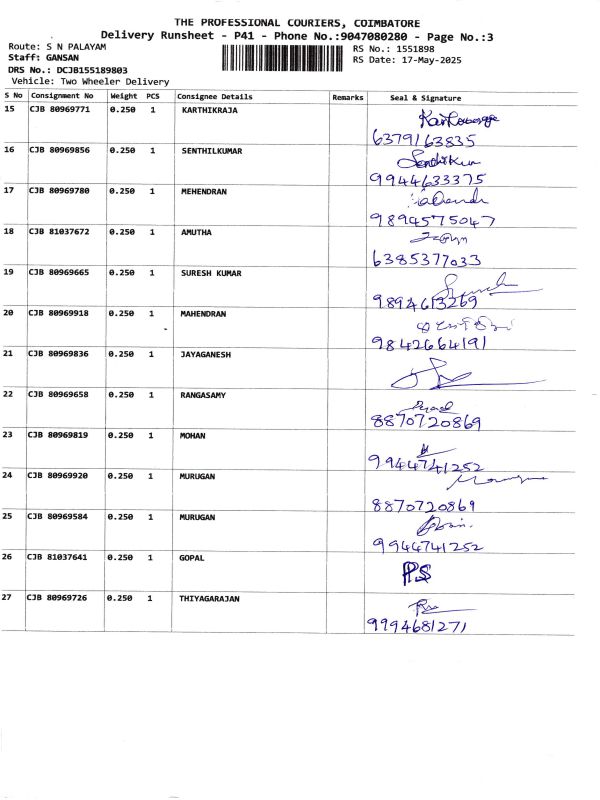 THE PROFESSIONAL COURIERS, COIMBATORE
Delivery Runsheet - P41 - Phone No.:9047080280 - Page No.:3
Route: S N PALAYAM RS No.: 1551898
Staff: GANSAN RS Date: 17-May-2025
DRS No.: DCJB155189803
Vehicle: Two Wheeler Delivery
S No Consignment No Weight PCS Consignee Details Remarks Seal & Signature
15 CJB 80969771 0.250 1 KARTHIKRAJA
6379163835
16 CJB 80969856 0.250 1 SENTHILKUMAR Senthilkum
9944633375
17 CJB 80969780 0.250 1 MEHENDRAN
9894575047
18 CJB 81037672 0.250 1 AMUTHA
6385377033
19 CJB 80969665 0.250 1 SURESH KUMAR
9894613269
20 CJB 80969918 0.250 1 MAHENDRAN
9842664191
21 CJB 80969836 0.250 1 JAYAGANESH
22 CJB 80969658 0.250 1 RANGASAMY
8870720869
23 CJB 80969819 0.250 1 MOHAN
9944741252
24 CJB 80969920 0.250 1 MURUGAN
8870720869
25 CJB 80969584 0.250 1 MURUGAN
9944741252
26 CJB 81037641 0.250 1 GOPAL PS
27 CJB 80969726 0.250 1 THIYAGARAJAN
9994681271